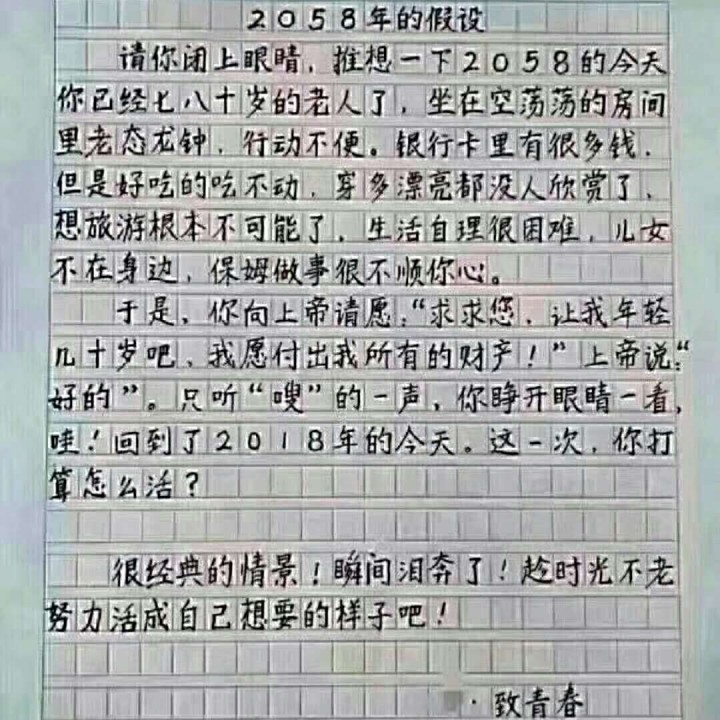 2058年的假设
请你闭上眼睛，推想一下2058的今天
你已经七八十岁的老人了，坐在空荡荡的房间
里老态龙钟，行动不便。银行卡里有很多钱，
但是好吃的吃不动，穿多漂亮都没人欣赏了，
想旅游根本不可能了，生活自理很困难，儿女
不在身边，保姆做事很不顺你心。
于是，你向上帝请愿：“求求您，让我年轻
几十岁吧，我愿付出我所有的财产！”上帝说：“
好的”。只听“嗖”的一声，你睁开眼睛一看，
哇！回到了2018年的今天。这一次，你打
算怎么活？
很经典的情景！瞬间泪奔了！趁时光不老
努力活成自己想要的样子吧！
·致青春